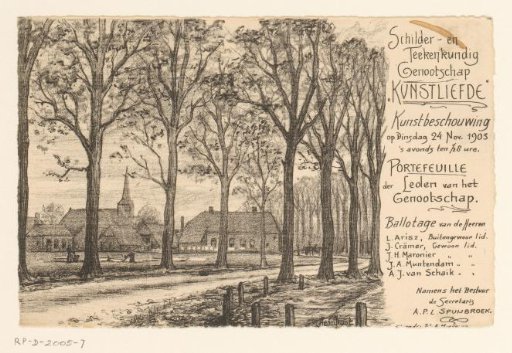 Schilder- en
Teekenkundig
Genootschap
„KUNSTLIEFDE”
Kunstbeschouwing
op Dinsdag 24 Nov. 1903
's avonds ten ½8 ure.
PORTEFEUILLE
der Leden van het
Genootschap.
Ballotage van de Heeren
L. Arisz, Buitengewoon lid.
J. Crämer, Gewoon lid.
J. H. Maronier „ „
J. A. Muntendam „ „
A. J. van Schaik „ „
Namens het Bestuur
de Secretaris
A. P. L. SPIJNBROEK.
RP-D-2005-7